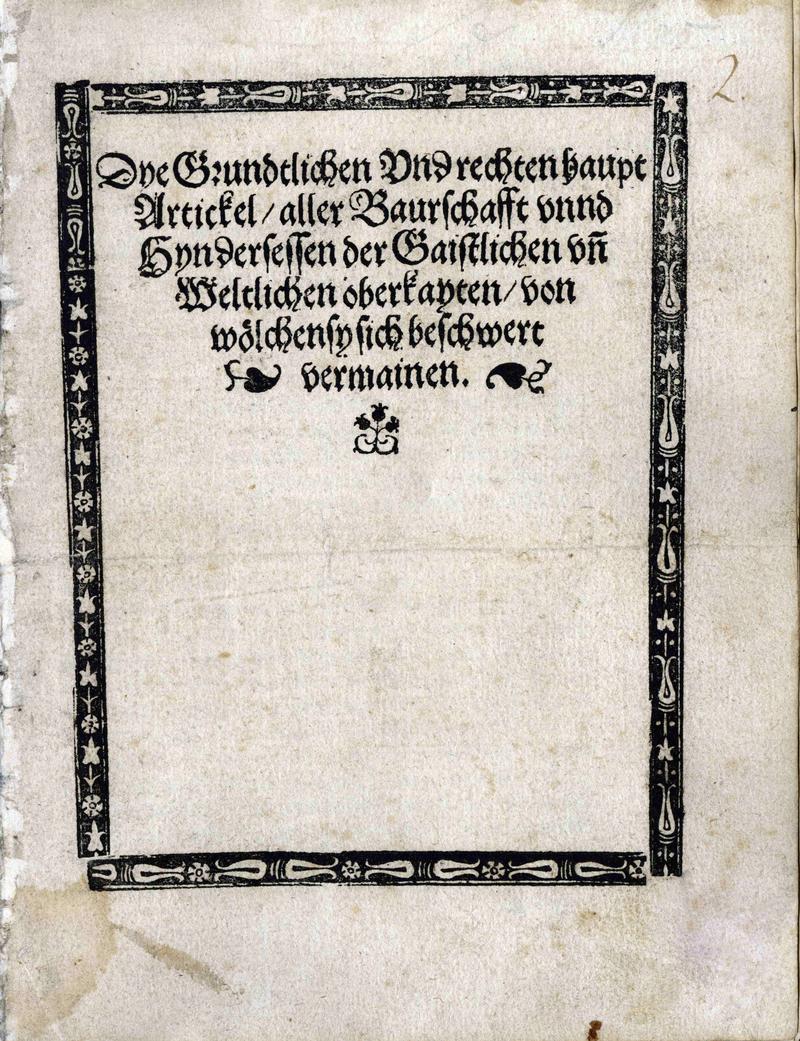 2.
Dye Grundtlichen Vnd rechten haupt
Artickel / aller Baurschafft vnnd
Hyndersessen der Gaistlichen vñ
Weltlichen oberkayten / von
wölchen sy sich beschwert
vermainen.